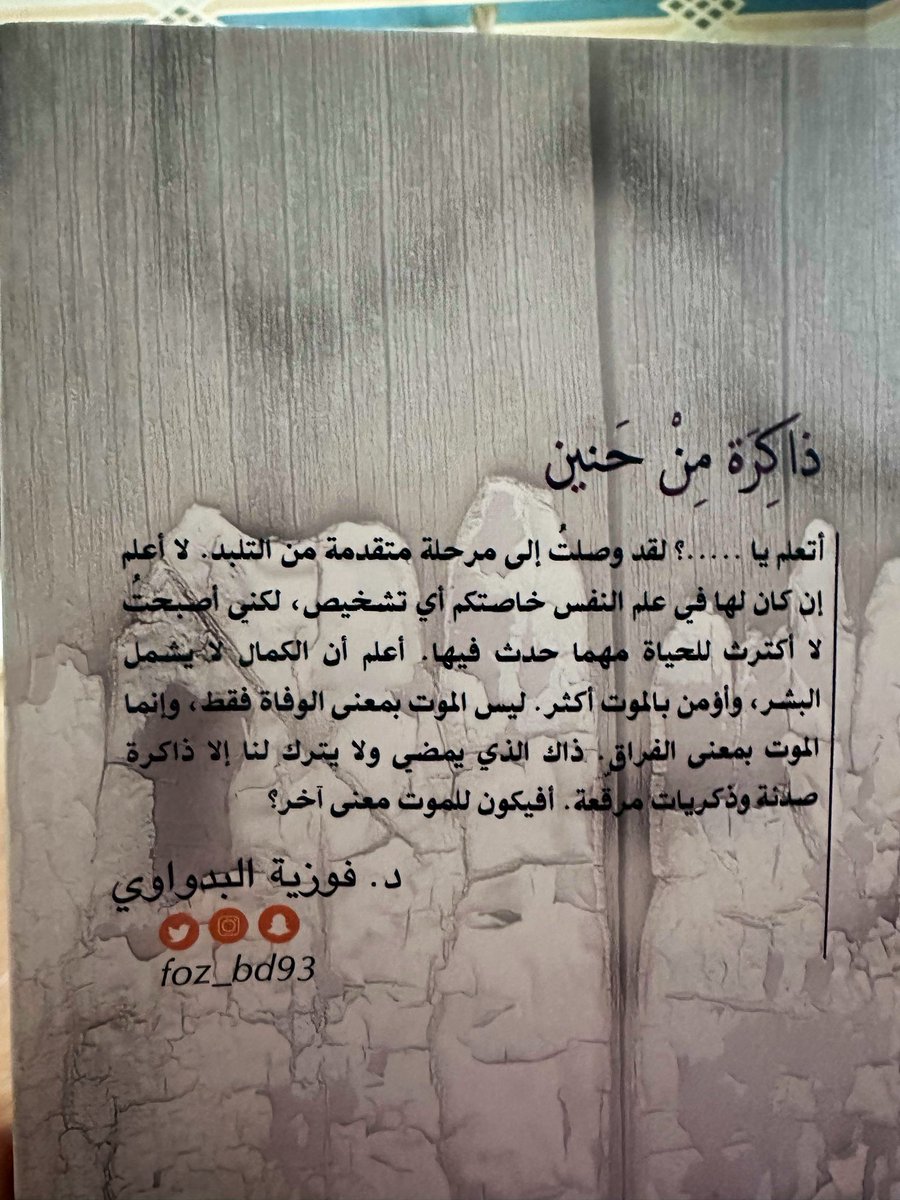 ذَاكِرَة مِنْ حَنين
أتعلم يا .....؟ لقد وصلتُ إلى مرحلة متقدمة من التلبد. لا أعلم
إن كان لها في علم النفس خاصتكم أي تشخيص، لكني أصبحتُ
لا أكترث للحياة مهما حدث فيها. أعلم أن الكمال لا يشمل
البشر، وأؤمن بالموت أكثر. ليس الموت بمعنى الوفاة فقط، وإنما
الموت بمعنى الفراق. ذاك الذي يمضي ولا يترك لنا إلا ذاكرة
صدئة وذكريات مرقّعة. أفيكون للموت معنى آخر؟
د. فوزية البدواوي
foz_bd93